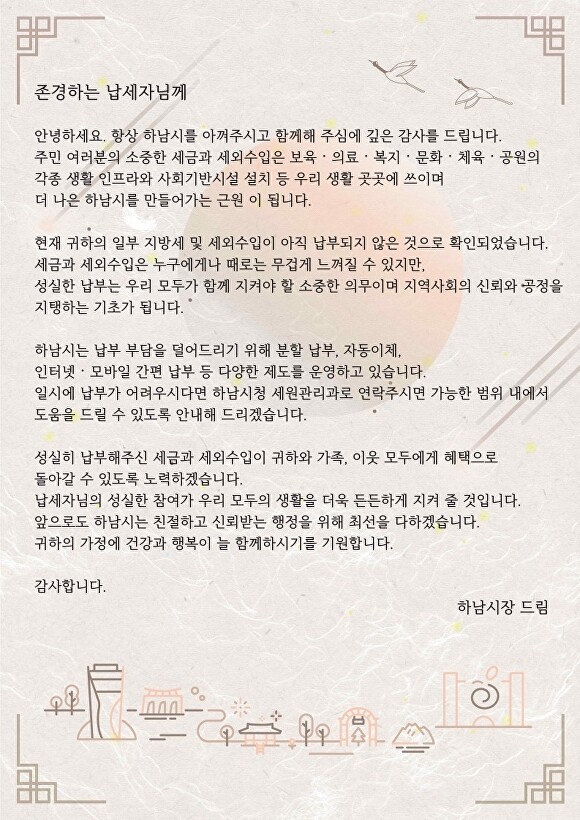 존경하는 납세자님께
안녕하세요. 항상 하남시를 아껴주시고 함께해 주심에 깊은 감사를 드립니다.
주민 여러분의 소중한 세금과 세외수입은 보육ㆍ의료ㆍ복지ㆍ문화ㆍ체육ㆍ공원의
각종 생활 인프라와 사회기반시설 설치 등 우리 생활 곳곳에 쓰이며
더 나은 하남시를 만들어가는 근원 이 됩니다.
현재 귀하의 일부 지방세 및 세외수입이 아직 납부되지 않은 것으로 확인되었습니다.
세금과 세외수입은 누구에게나 때로는 무겁게 느껴질 수 있지만,
성실한 납부는 우리 모두가 함께 지켜야 할 소중한 의무이며 지역사회의 신뢰와 공정을
지탱하는 기초가 됩니다.
하남시는 납부 부담을 덜어드리기 위해 분할 납부, 자동이체,
인터넷ㆍ모바일 간편 납부 등 다양한 제도를 운영하고 있습니다.
일시에 납부가 어려우시다면 하남시청 세원관리과로 연락주시면 가능한 범위 내에서
도움을 드릴 수 있도록 안내해 드리겠습니다.
성실히 납부해주신 세금과 세외수입이 귀하와 가족, 이웃 모두에게 혜택으로
돌아갈 수 있도록 노력하겠습니다.
납세자님의 성실한 참여가 우리 모두의 생활을 더욱 든든하게 지켜 줄 것입니다.
앞으로도 하남시는 친절하고 신뢰받는 행정을 위해 최선을 다하겠습니다.
귀하의 가정에 건강과 행복이 늘 함께하시기를 기원합니다.
감사합니다.
하남시장 드림